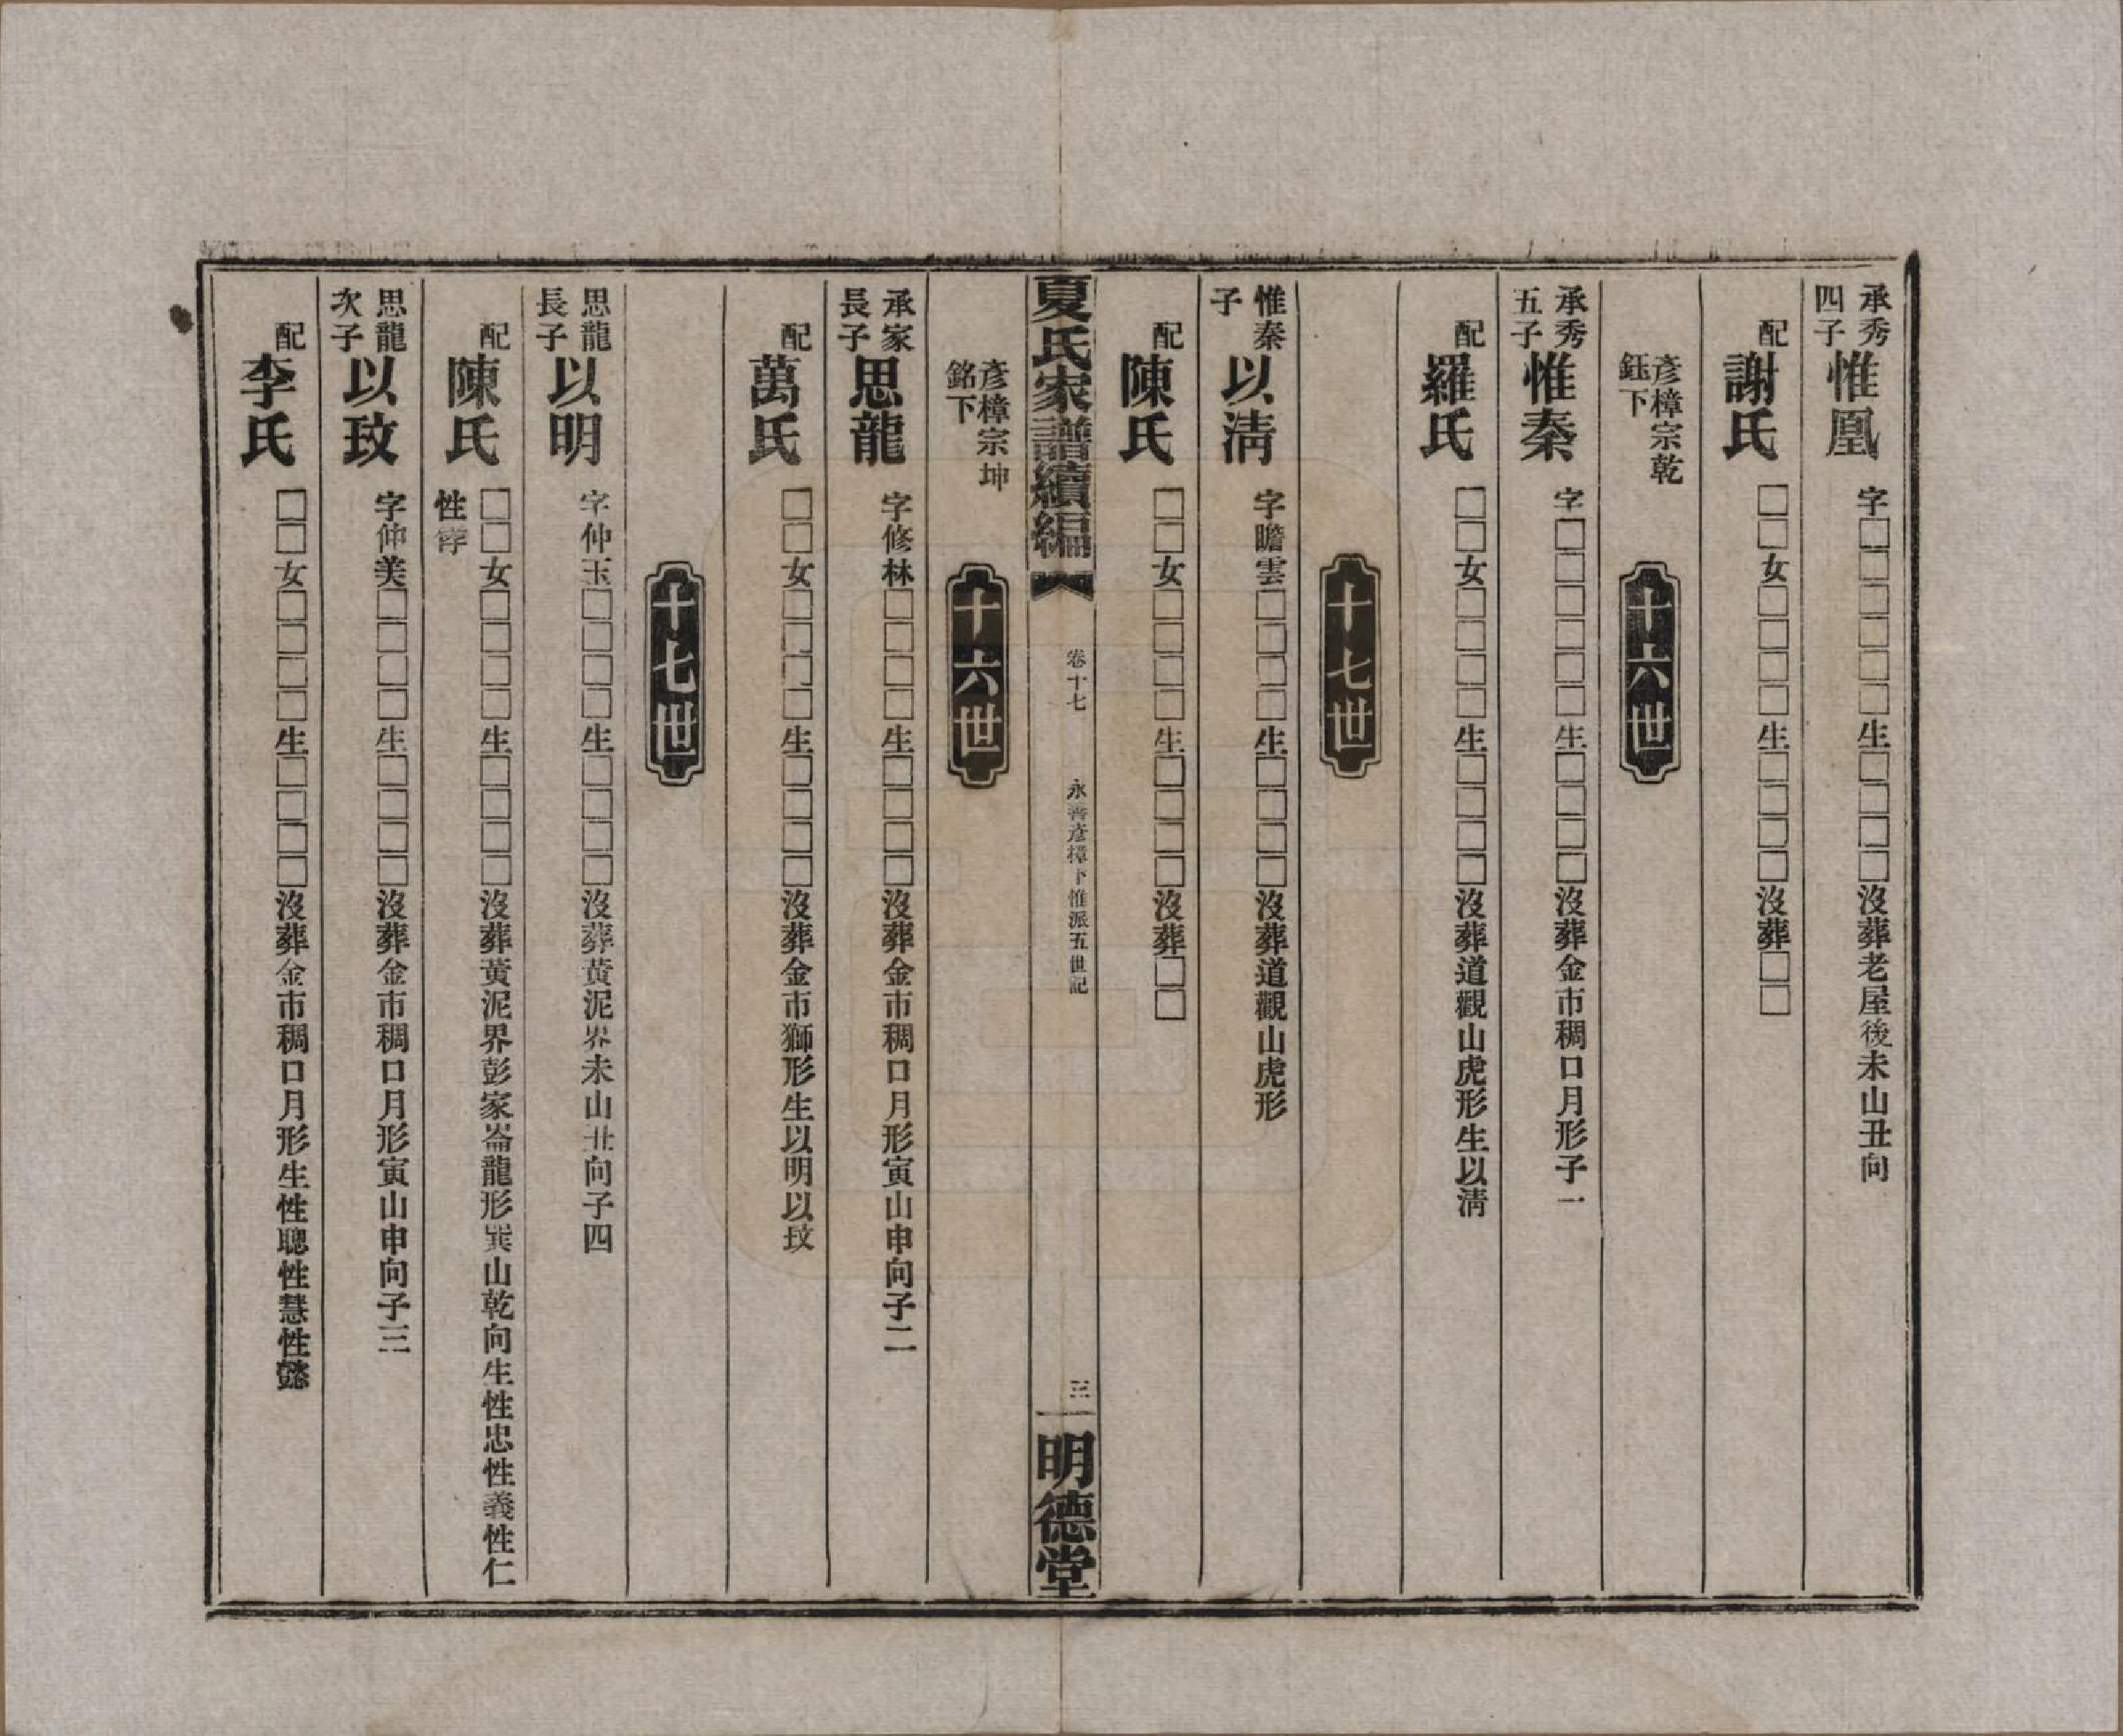 承秀四子 惟凰 字□□□□□生□□□□沒葬老屋後未山丑向
配 謝氏 □□女□□□□生□□□□沒葬□□
彥樟宗乾鈺下 十六世
承秀五子 惟秦 字□□□□□□生□□□□沒葬金市稠口月形子一
配 羅氏 □□女□□□□生□□□□沒葬道觀山虎形生以淸
十七世
惟秦子 以淸 字瞻雲□□□□生□□□□沒葬道觀山虎形
配 陳氏 □□女□□□□生□□□□沒葬□□
夏氏家譜續編 卷十七 永善彥樟下惟派五世記 三 明德堂
彥樟宗坤銘下 十六世
承家長子 思龍 字修林□□□□生□□□□沒葬金市稠口月形寅山申向子二
配 萬氏 □□女□□□□生□□□□沒葬金市獅形生以明以玟
十七世
思龍長子 以明 字仲玉□□□□生□□□□沒葬黃泥界未山丑向子四
配 陳氏 □□女□□□□生□□□□沒葬黃泥界彭家崙龍形巽山乾向生性忠性義性仁
性孝
思龍次子 以玟 字仲美□□□□生□□□□沒葬金市稠口月形寅山申向子三
配 李氏 □□女□□□□生□□□□沒葬金市稠口月形生性聰性慧性懿